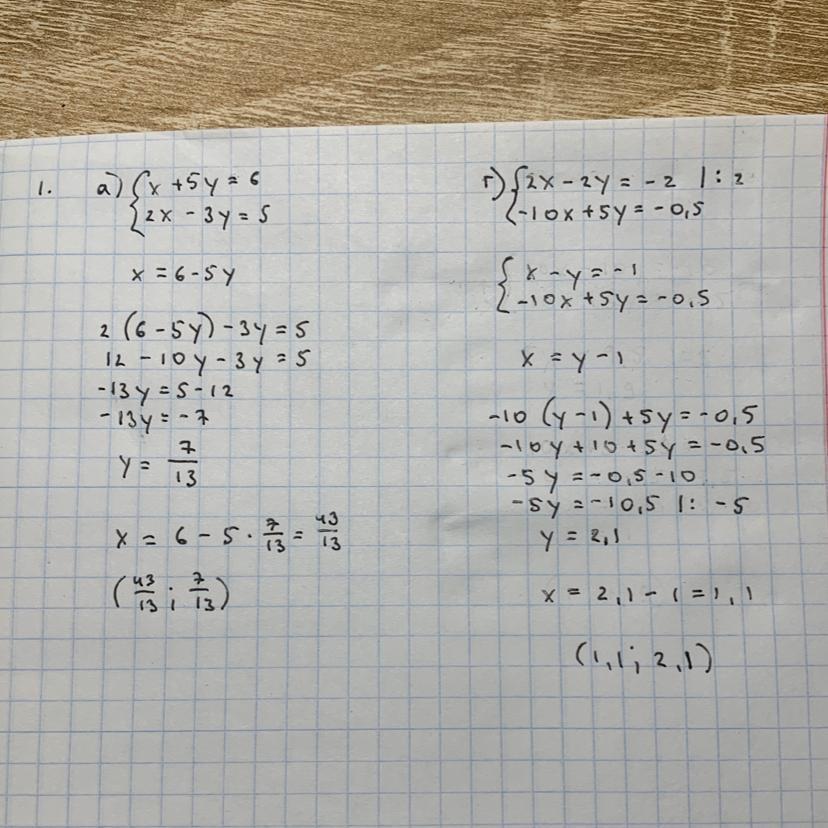 1. а) { x + 5y = 6
2x - 3y = 5
x = 6 - 5y
2 (6 - 5y) - 3y = 5
12 - 10y - 3y = 5
-13y = 5 - 12
-13y = -7
y = 7/13
x = 6 - 5 · 7/13 = 43/13
(43/13 ; 7/13)
г) { 2x - 2y = -2 | : 2
-10x + 5y = -0,5
{ x - y = -1
-10x + 5y = -0,5
x = y - 1
-10 (y - 1) + 5y = -0,5
-10y + 10 + 5y = -0,5
-5y = -0,5 - 10
-5y = -10,5 | : -5
y = 2,1
x = 2,1 - 1 = 1,1
(1,1; 2,1)